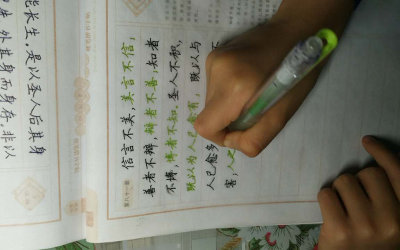 能长生。是以圣人后其身
先,外其身而身存。非以
第八十一章
信言不美,美言不信;
善者不辩,辩者不善;知者
不博,博者不知。圣人不积,
既以为人己愈有,既以与
人己愈多
不
害;人